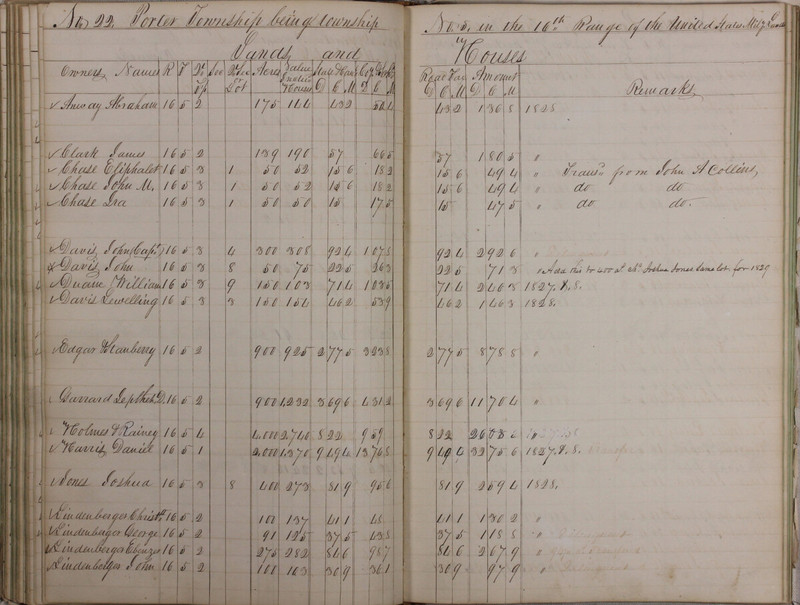 No 22. Porter Township being township No 5. in the 16th Range of the United States Mily Lands
Lands and Houses
Owners Names R T Qr Tp Sec Qr Sec Lot Acres Value Road Tax Amount Remarks
Anway Abraham 16 5 2 175 144 432 504 432 1368 1828
Clark James 16 5 2 139 190 57 665 57 1805 "
Chase Eliphalet 16 5 3 1 50 52 156 182 156 494 " Trans from John A Collins,
Chase John M. 16 5 3 1 50 52 156 182 156 494 " do do
Chase Ira 16 5 3 1 50 50 15 175 15 475 " do do.
Davis John (Capt.) 16 5 3 4 300 308 924 1078 924 2926 "
Davis John 16 5 3 8 50 75 225 263 225 713 " Add this to 400 at Joshua Jones same lot, for 1829
Duane William 16 5 3 9 150 103 714 1035 714 2463 1827. & 8.
Davis Lewelling 16 5 3 3 150 154 462 539 462 1463 1828.
Edgar Stanberry 16 5 2 900 925 2775 3238 2775 8788 "
Garrard 16 5 2 900 1232 3696 4312 3696 11704 "
Holmes & Rainey 16 5 4 4000 2740 822 959 822
Harris Daniel 16 5 1 2,000 1370 9494 13765 9494 32756 1827. & 8.
Jones Joshua 16 5 3 8 400 273 819 956 819 2594 1828.
Lindenberger Christr 16 5 2 100 137 411 48 411 1302 "
Lindenberger George 16 5 2 91 125 375 438 375 1188 "
Lindenberger Ebenzer 16 5 2 275 282 846 987 846 2679 "
Lindenberger John 16 5 2 100 103 309 361 309 979 "